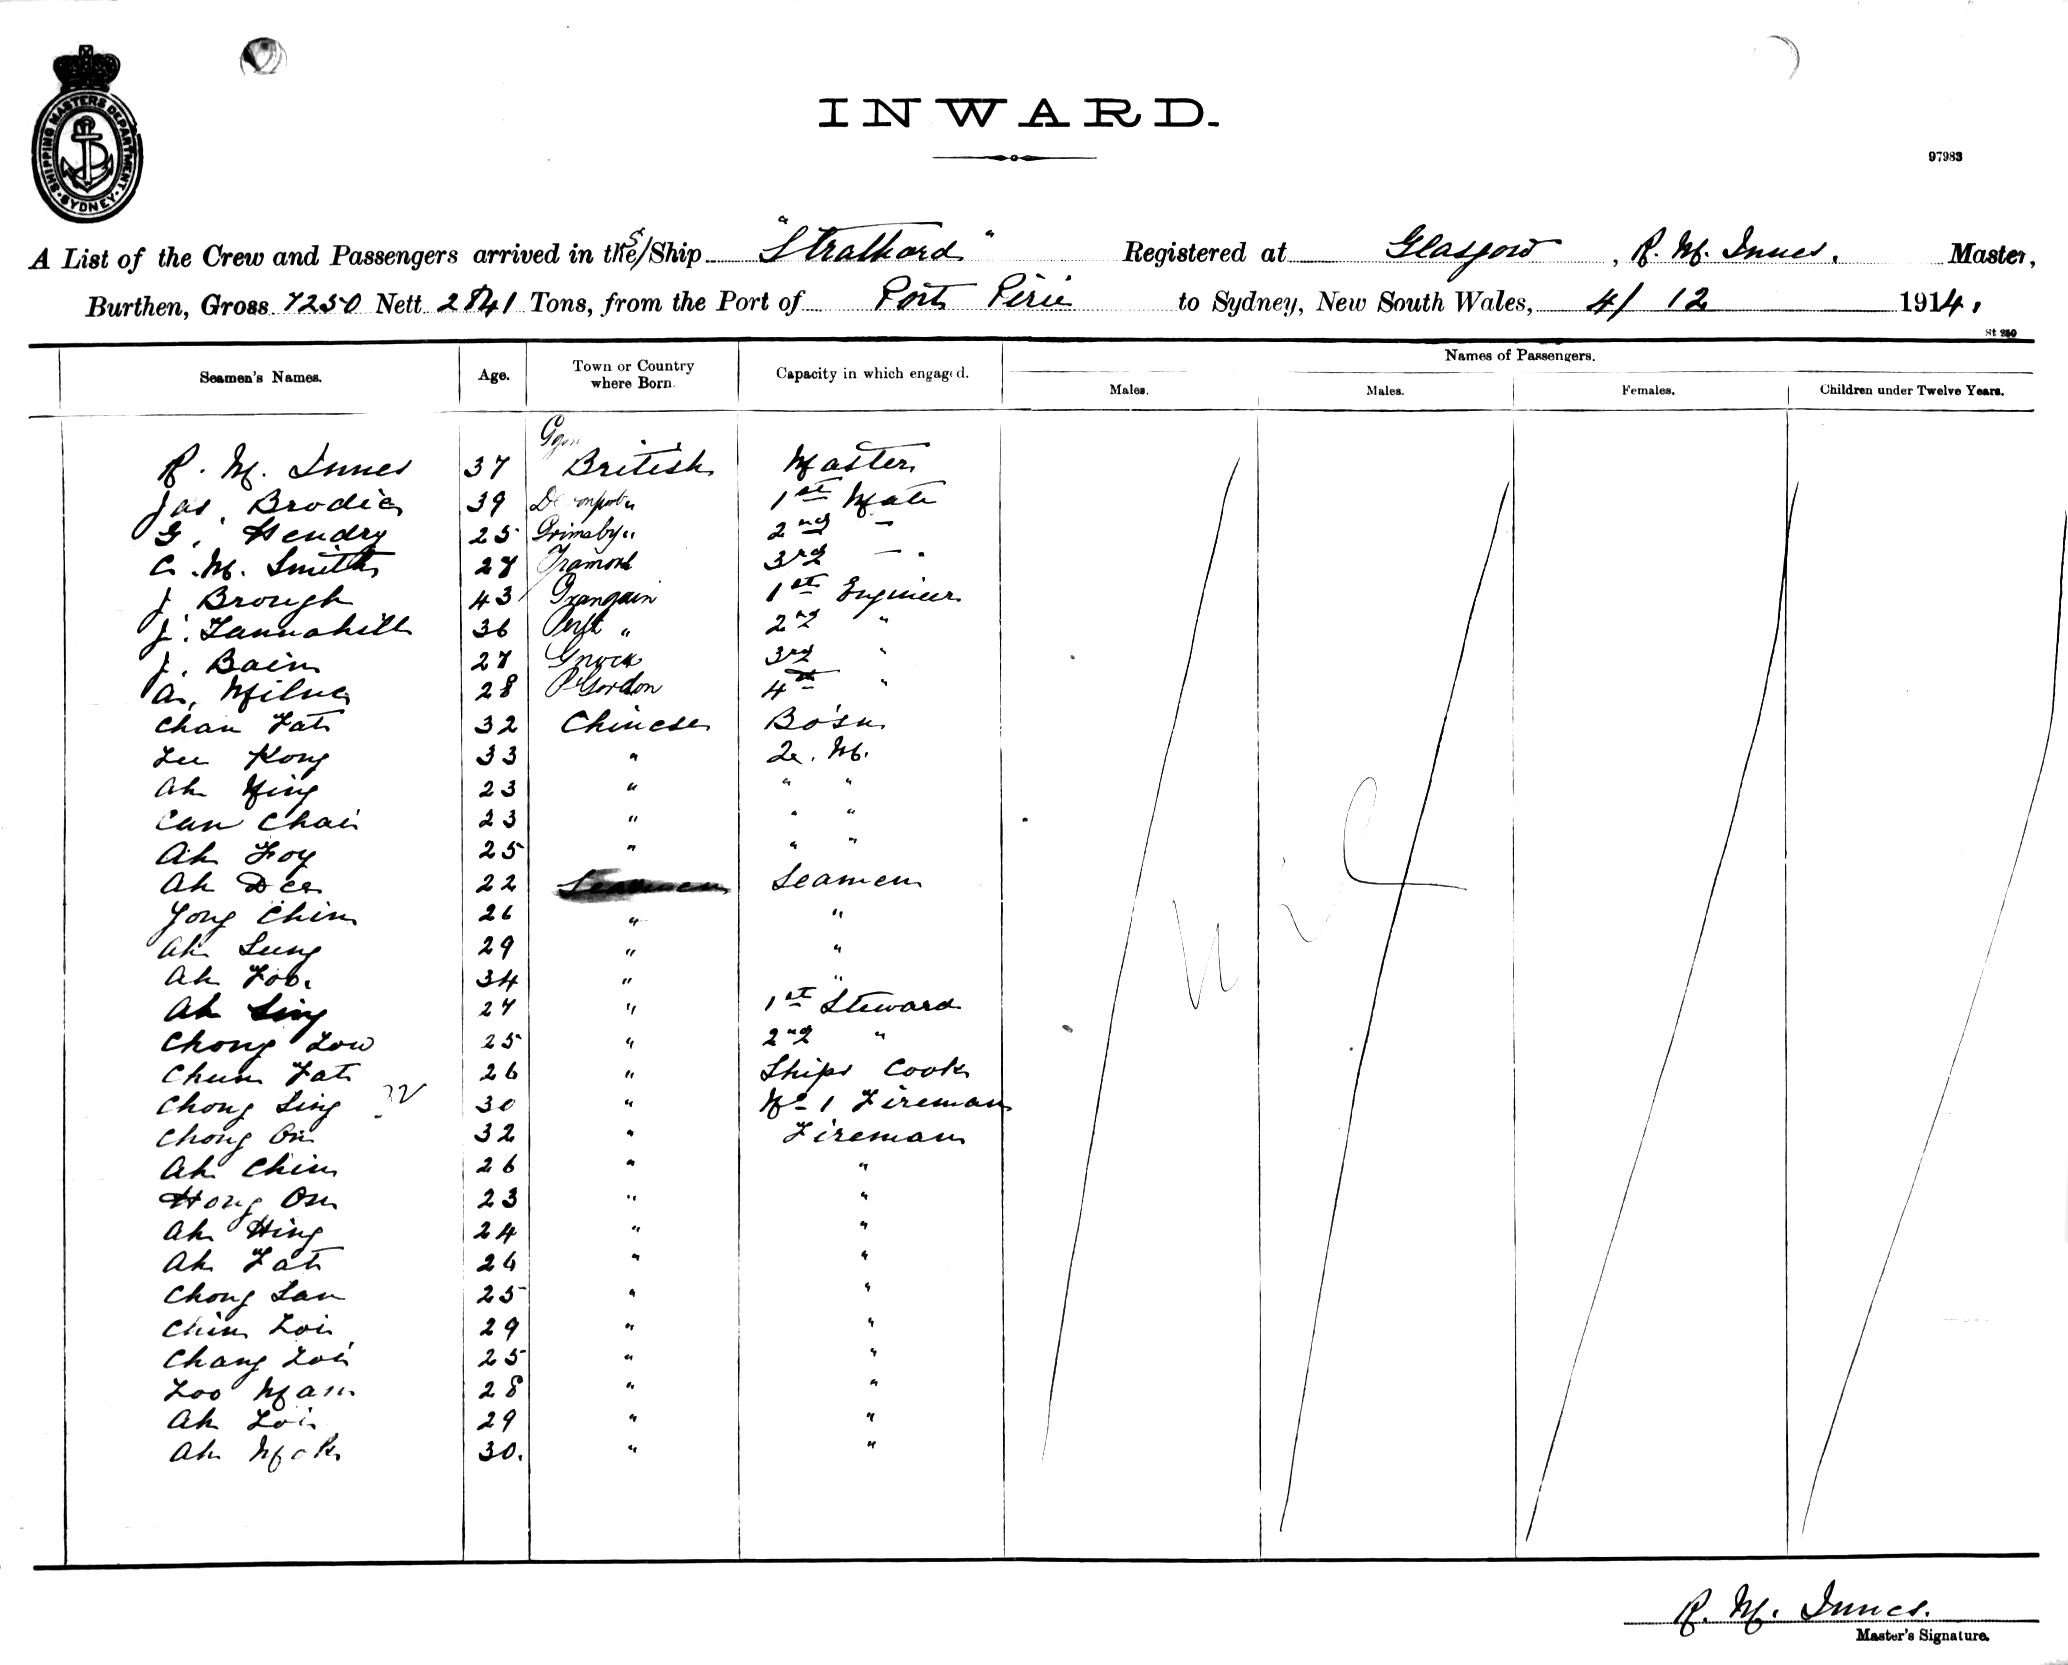 SHIPPING MASTERS DEPARTMENT
SYDNEY
INWARD.
97983
A List of the Crew and Passengers arrived in the S/Ship "Strathord" Registered at Glasgow, R. M. Innes. Master,
Burthen, Gross 7250 Nett 2841 Tons, from the Port of Port Pirie to Sydney, New South Wales, 4/12 1914.
St 250
Seamen's Names. Age. Town or Country where Born. Capacity in which engaged. Names of Passengers.
Males. Males. Females. Children under Twelve Years.
R. M. Innes 37 British Master
Jas. Brodie 39 1st Mate
G. Hendry 25 Grimsby " 2nd "
C. M. Smith 27 3rd "
J. Brough 43 1st Engineer
J. Tannahill 36 " 2nd "
J. Bain 27 3rd "
A. Milne 28 P Gordon 4th "
Chan Fat 32 Chinese Bo'sn
Lee Kong 33 " Q. M.
Ah Ming 23 " " "
Can Chai 23 " " "
Ah Foy 25 " " "
Ah Dee 22 Seamen Seamen
Yong Chin 26 " "
Ah Sung 29 " "
Ah Foo. 34 " "
Ah Sing 27 " 1st Steward
Chong Low 25 " 2nd "
Chun Fat 26 " Ships Cook
Chong Sing 32 30 " No 1 Fireman
Chong On 32 " Fireman
Ah Chin 26 " "
Hong On 23 " "
Ah Hing 24 " "
Ah Fat 26 " "
Chong San 25 " "
Chin Loi 29 " "
Chang Loi 25 " "
Loo Man 28 " "
Ah Loi 29 " "
Ah Mok 30. " "
Nil
R. M. Innes.
Master's Signature.